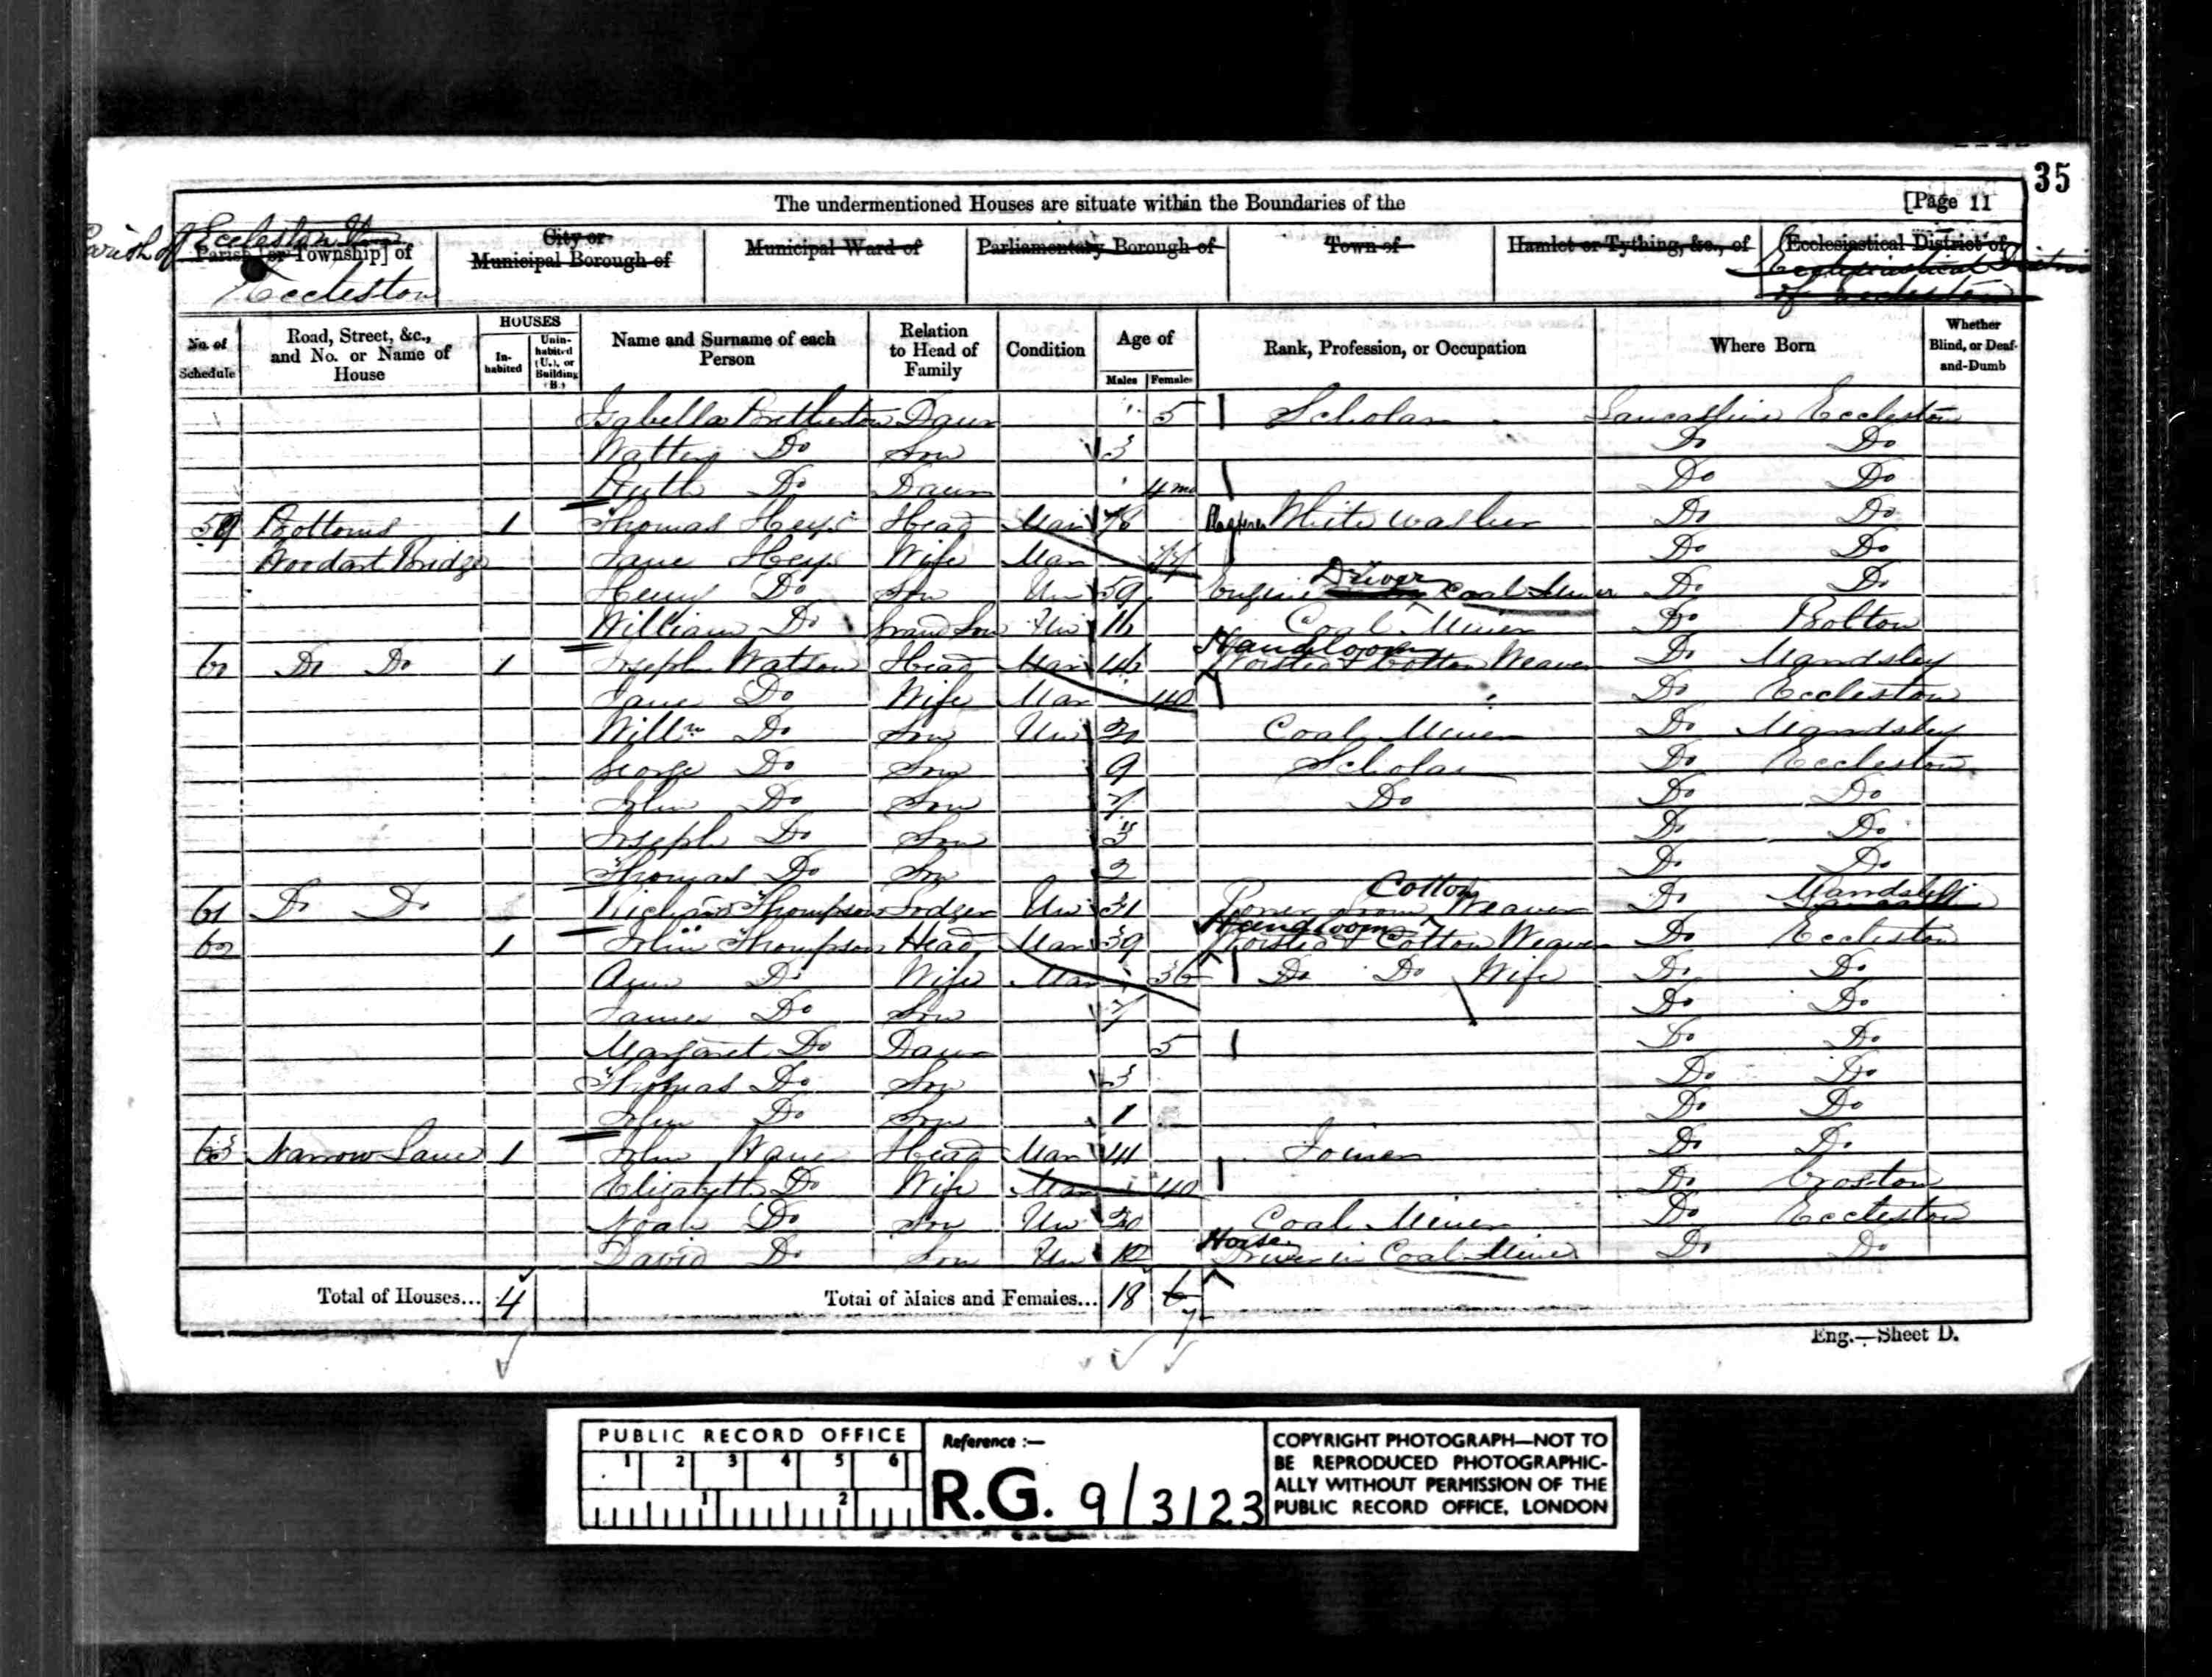 35
The undermentioned Houses are situate within the Boundaries of the
[Page 11
Parish of
Parish [or Township] of
Eccleston
City or Municipal Borough of
Municipal Ward of
Parliamentary Borough of
Town of
Hamlet or Tything, &c., of
Ecclesiastical District of
Ecclesiastical District
of Eccleston
No. of Schedule
Road, Street, &c., and No. or Name of House
HOUSES
In-habited
Unin-habited (U.), or Building (B.)
Name and Surname of each Person
Relation to Head of Family
Condition
Age of
Males
Females
Rank, Profession, or Occupation
Where Born
Whether Blind, or Deaf-and-Dumb
Isabella Bretherton Daur 5 Scholar Lancashire Eccleston
Do Son 3 Do Do
Ruth Do Daur 4 mo Do Do
59 Bottoms 1 Thomas Heys Head Mar 78 White washer Do Do
Bridge Jane Heys Wife Mar 77 Do Do
Henry Do Son Un 59 Engine Driver Coal Mine Do Do
William Do Grand Son Un 16 Coal Miner Do Bolton
60 Do Do 1 Joseph Watson Head Mar 46 Handloom Worsted & Cotton Weaver Do Mawdsley
Jane Do Wife Mar 40 Do Eccleston
Willm Do Son Un 20 Coal Miner Do Mawdsley
George Do Son 9 Scholar Do Eccleston
John Do Son 7 Do Do Do
Joseph Do Son 3 Do Do
Thomas Do Son 2 Do Do
61 Do Do Richard Thompson Lodger Un 31 Power Loom Cotton Weaver Do
62 1 John Thompson Head Mar 39 Handloom Worsted & Cotton Weaver Do Eccleston
Ann Do Wife Mar 36 Do Do Wife Do Do
James Do Son 7 Do Do
Margaret Do Daur 5 Do Do
Thomas Do Son 3 Do Do
John Do Son 1 Do Do
63 Narrow Lane 1 John Wane Head Mar 41 Joiner Do Do
Elizabeth Do Wife Mar 40 Do Croston
Noah Do Son Un 20 Coal Miner Do Eccleston
David Do Son Un Horse Driver in Coal Mine Do Do
Total of Houses... 4
Total of Males and Females... 18 6
7
Eng.—Sheet D.
PUBLIC RECORD OFFICE
1 2 3 4 5 6
1 2
Reference :—
R.G. 9/3123
COPYRIGHT PHOTOGRAPH—NOT TO
BE REPRODUCED PHOTOGRAPHIC-
ALLY WITHOUT PERMISSION OF THE
PUBLIC RECORD OFFICE, LONDON